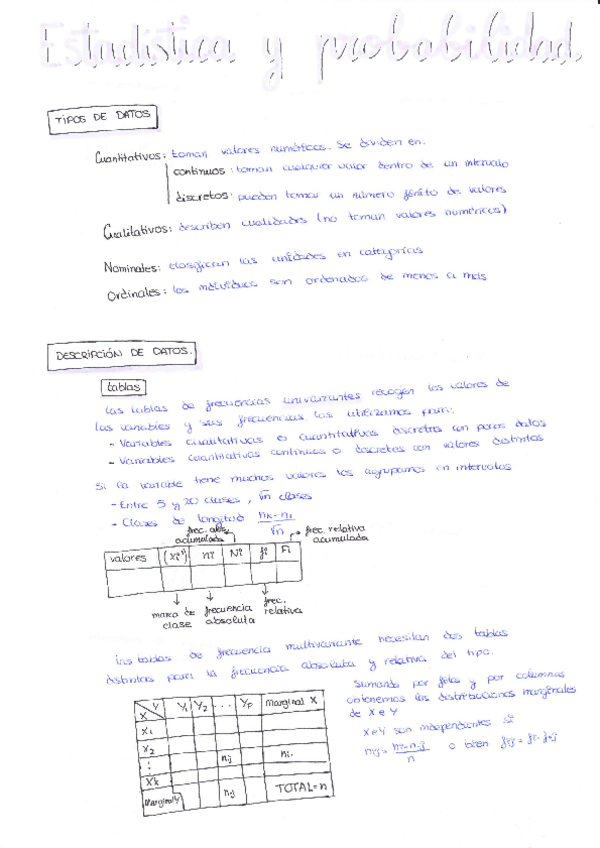 Estadística y probabilidad
TIPOS DE DATOS
Cuantitativos: toman valores numéricos. Se dividen en.
continuos: toman cualquier valor dentro de un intervalo
discretos: pueden tomar un número finito de valores
Cualitativos: describen cualidades (no toman valores numéricos)
Nominales: clasifican las unidades en categorías
Ordinales: los individuos son ordenados de menos a más
DESCRIPCIÓN DE DATOS.
tablas
Las tablas de frecuencias univariantes recogen los valores de
las variables y sus frecuencias. Las utilizamos para:
- Variables cualitativas o cuantitativas discretas con pocos datos
- Variables cuantitativas continuas o discretas con valores distintos
Si la variable tiene muchos valores los agrupamos en intervalos
- Entre 5 y 20 clases, √n clases
- Clases de longitud nk-n1/√n
frec. abs. acumulada
frec. relativa acumulada
valores (xi') ni Ni fi Fi
marca de clase
frecuencia absoluta
frec. relativa
Las tablas de frecuencia multivariante necesitan dos tablas
distintas para la frecuencia absoluta y relativa del tipo.
X Y Y1 Y2 ... Yp marginal X
X1
X2
⋮ nij ni.
Xk
Marginal Y n.j TOTAL=n
Sumando por filas y por columnas
obtenemos las distribuciones marginales
de X e Y
X e Y son independientes si
nij = ni.·n.j/n o bien fij = fi.·f.j